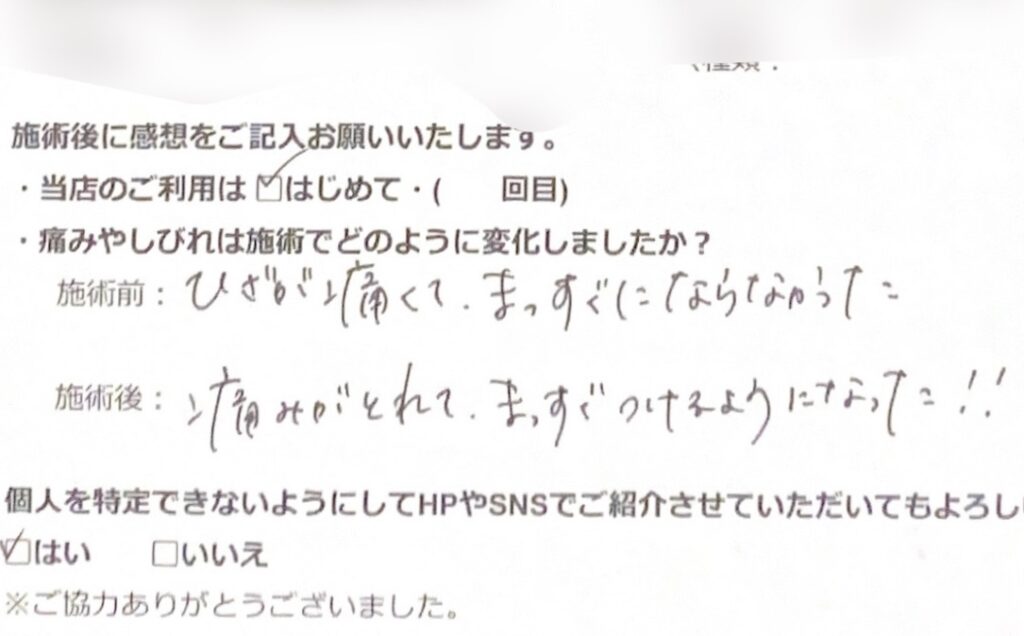 施術後に感想をご記入お願いいたします。
・当店のご利用は ☑はじめて・(　　回目)
・痛みやしびれは施術でどのように変化しましたか？
施術前： ひざが痛くて、まっすぐにならなかった
施術後： 痛みがとれて、まっすぐつけるようになった!!
個人を特定できないようにしてHPやSNSでご紹介させていただいてもよろし
☑はい　　□いいえ
※ご協力ありがとうございました。